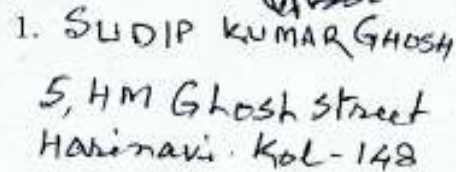 1. SUDIP KUMAR GHOSH
5, HM Ghosh street
Harinavi. Kol-148